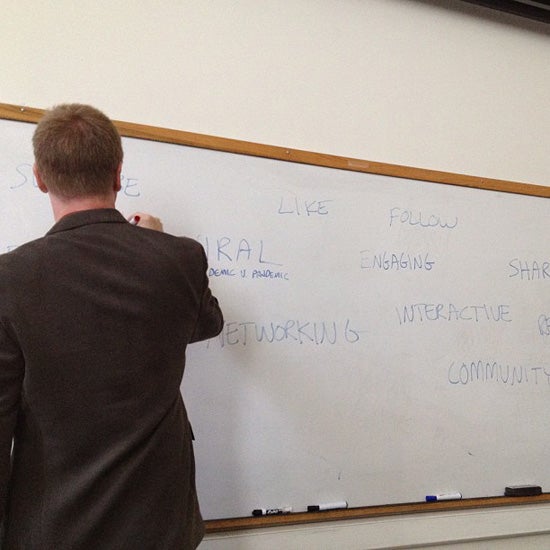 LIKE
FOLLOW
IRAL
DEMIC V. PANDEMIC
ENGAGING
SHAR
NETWORKING
INTERACTIVE
RE
COMMUNITY